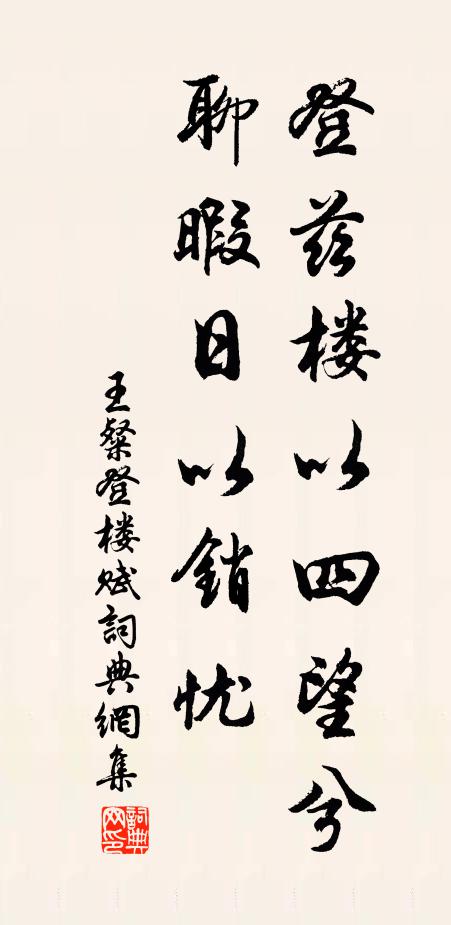 登茲楼以四望兮
聊暇日以銷忧
王粲登楼赋詞典網集
詞典网印